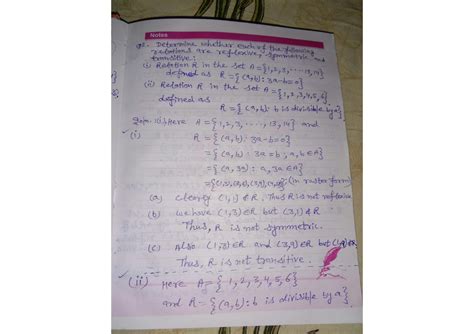 Notes
Q1. Determine whether each of the following
relations are reflexive, symmetric and
transitive:
(i) Relation R in the set A={1,2,3,....13,14}
defined as R={(a,b): 3a-b=0}
(ii) Relation R in the set A={1,2,3,4,5,6}
defined as
R={(a,b): b is divisible by a}
(i) Here A={1,2,3,....,13,14} and
(i) R={(a,b): 3a-b=0}
={(a,b): 3a=b, a,b∈A}
={(a,3a): a,3a∈A}
={(1,3),(2,6),(3,9),(4,12)} (in roster form)
(a) Clearly (1,1)∉R. Thus R is not reflexive
(b) We have (1,3)∈R but (3,1)∉R
Thus, R is not symmetric.
(c) Also (1,3)∈R and (3,9)∈R but (1,9)∉R
Thus, R is not transitive.
(ii) Here A={1,2,3,4,5,6}
and R={(a,b): b is divisible by a}